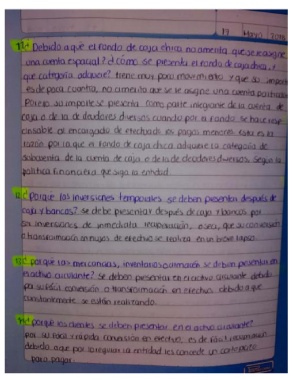 19 Mayo 2016
11- Debido a qué el fondo de caja chica no amerita que se le asigne
una cuenta especial? ¿cómo se presenta el fondo de caja chica, y
que categoría adquiere? tiene muy poco movimiento y que su importe
es de poca cuantía, no amerita que se le asigne una cuenta particular
Por eso su importe se presenta como parte integrante de la cuenta de
caja o de la de deudores diversos cuando por el fondo se hace resp
onsable al encargado de efectuar los pagos menores, esta es la
razón por la que el fondo de caja chica adquiere la categoría de
subcuenta de la cuenta de caja o de la de deudores diversos. Según la
política financiera que siga la entidad.
12- ¿Porqué las inversiones temporales se deben presentar después de
caja y bancos? se debe presentar después de caja y bancos por
ser inversiones de inmediata recuperación, o sea, que su conversión
o transformación en flujos de efectivo se realiza en un breve lapso.
13- ¿porqué las mercancías, inventarios o almacén se deben presentar en
el activo circulante? se deben presentar en el activo circulante debido
por su fácil conversión o transformación en efectivo, debido a que
constantemente se están realizando.
14- ¿porqué los clientes se deben presentar en el activo circulante?
por su fácil y rápida conversión en efectivo, es de fácil recuperación
debido a que por lo regular la entidad les concede un corto plazo
para pagar.